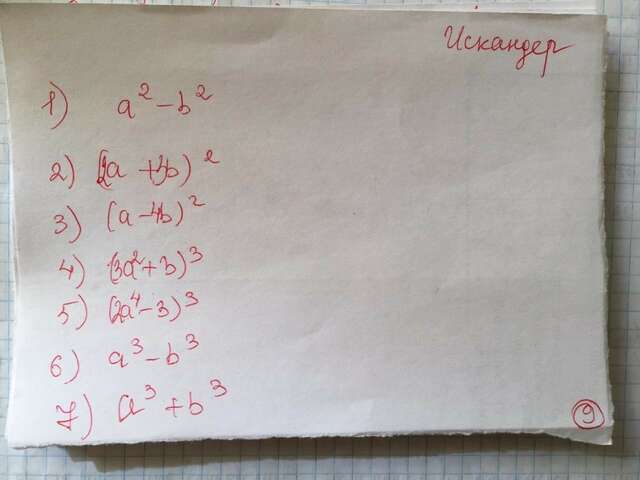 Искандер
1) a² - b²
2) (2a + 3b)²
3) (a - 4b)²
4) (3a² + b)³
5) (2a⁴ - 3)³
6) a³ - b³
7) a³ + b³
9